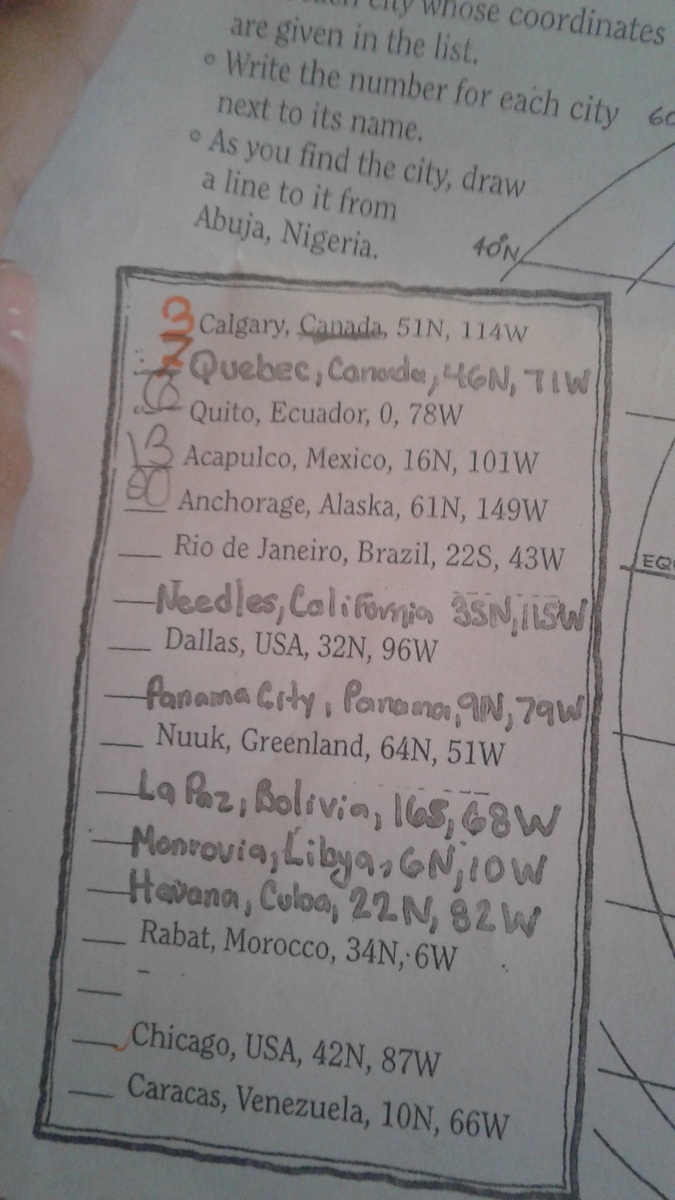 city whose coordinates
are given in the list.
° Write the number for each city
next to its name.
° As you find the city, draw
a line to it from
Abuja, Nigeria.
60
40°N
3 Calgary, Canada, 51N, 114W
7 Quebec, Canada, 46N, 71W
Quito, Ecuador, 0, 78W
13 Acapulco, Mexico, 16N, 101W
20 Anchorage, Alaska, 61N, 149W
Rio de Janeiro, Brazil, 22S, 43W
EQ
Needles, California 35N, 115W
Dallas, USA, 32N, 96W
Panama City, Panama, 9N, 79W
Nuuk, Greenland, 64N, 51W
La Paz, Bolivia, 16S, 68W
Monrovia, Libya, 6N, 10W
Havana, Cuba, 22N, 82W
Rabat, Morocco, 34N, 6W
Chicago, USA, 42N, 87W
Caracas, Venezuela, 10N, 66W